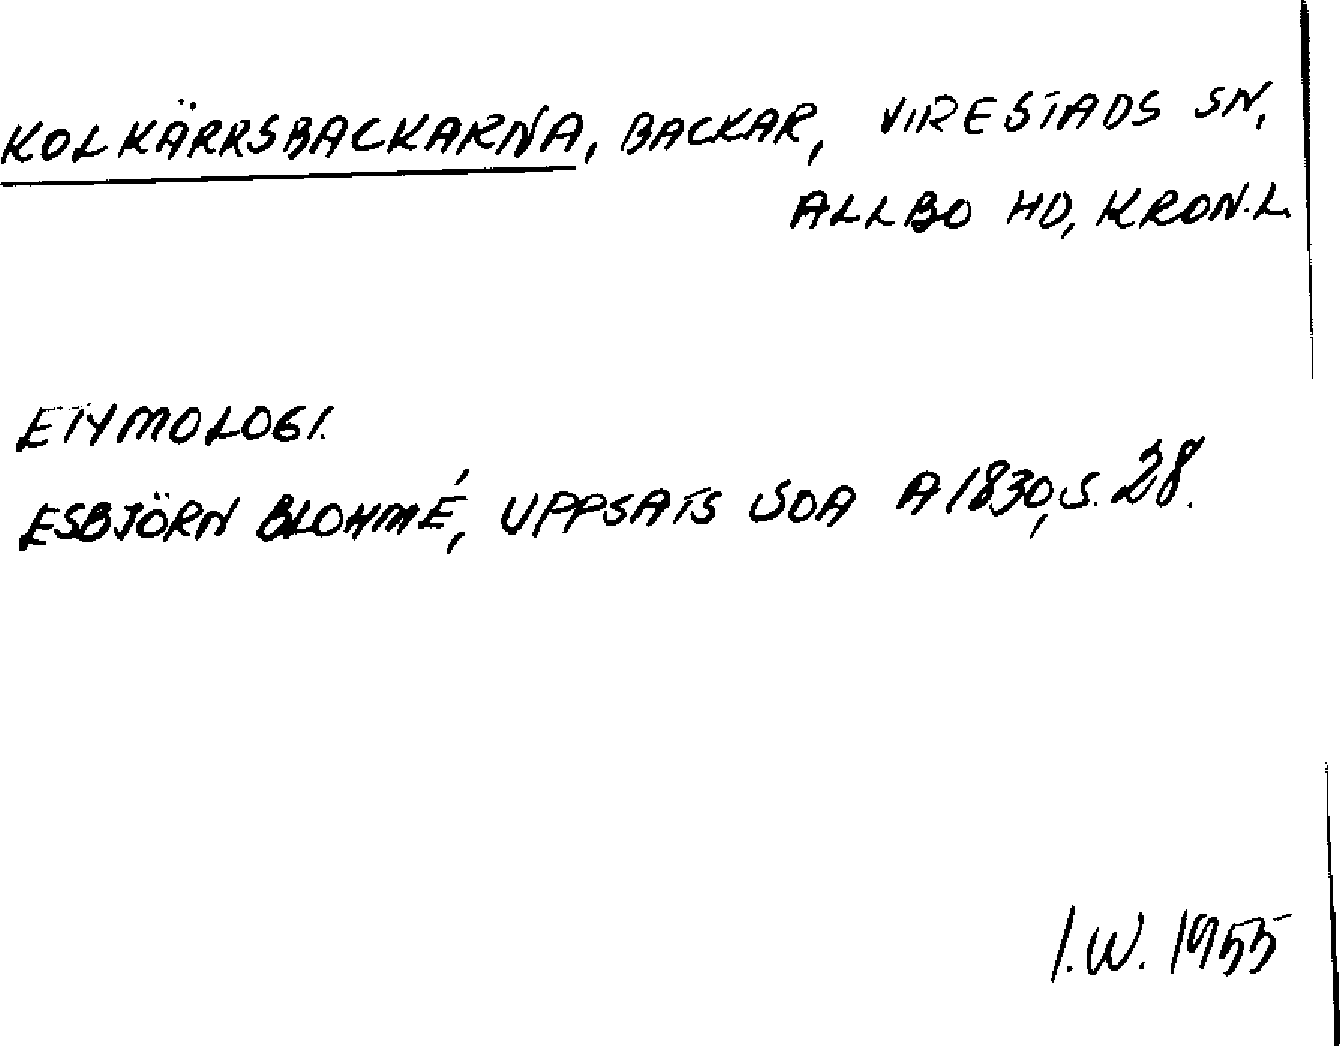 KOLKÄRRSBACKARNA, BACKAR, VIRESTADS SN,
ALLBO HD, KRON.L.
ETYMOLOGI.
ESBJÖRN BLOHMÉ, UPPSATS SOA A1830, S. 28.
I.W. 1955